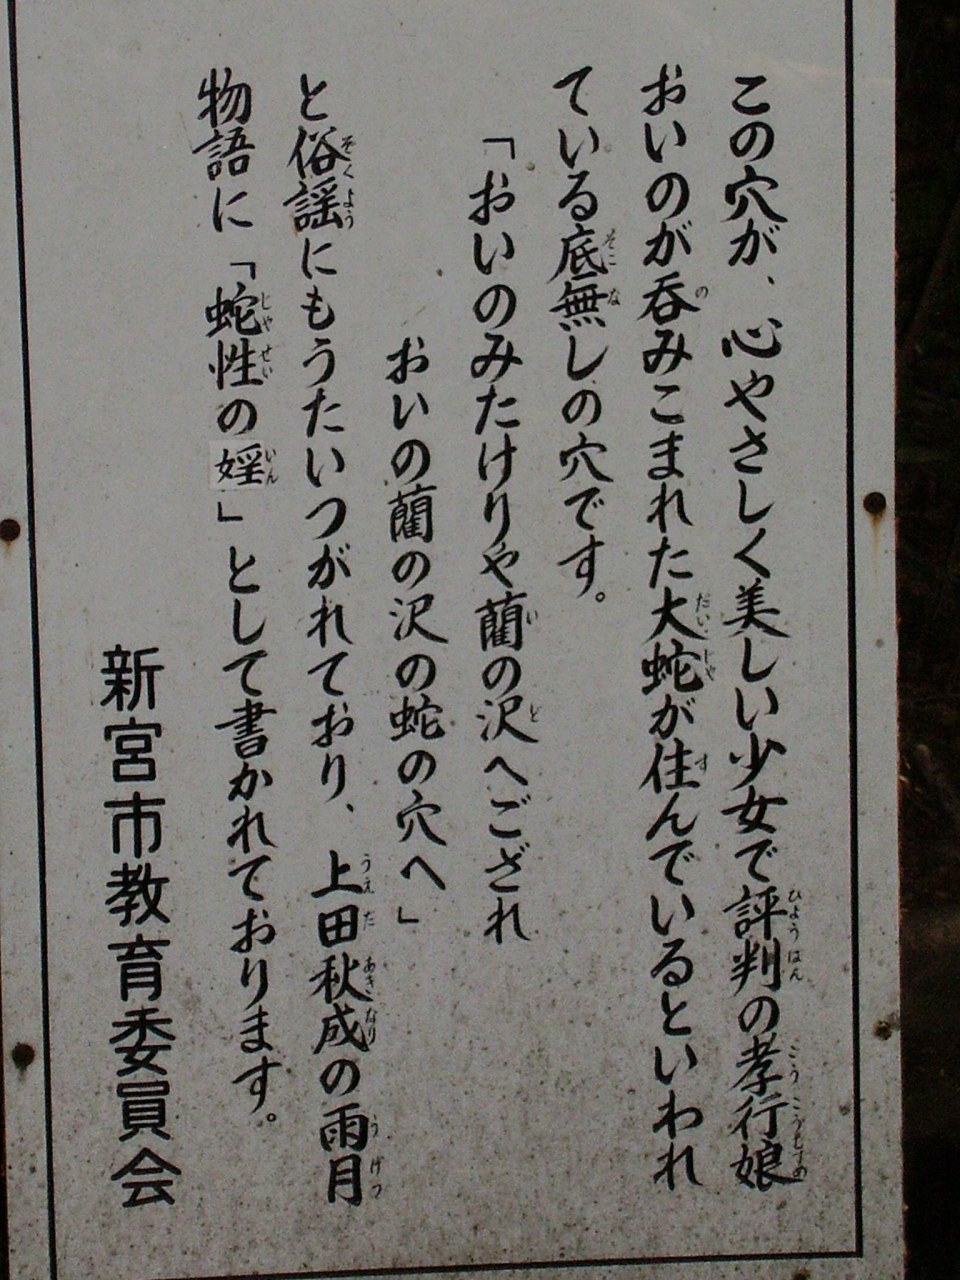 この穴が、心やさしく美しい少女で評判の孝行娘
おいのが呑みこまれた大蛇が住んでいるといわれ
ている底無しの穴です。
「おいのみたけりや藺の沢へござれ
おいの藺の沢の蛇の穴へ」
と俗謡にもうたいつがれており、上田秋成の雨月
物語に「蛇性の婬」として書かれております。
新宮市教育委員会